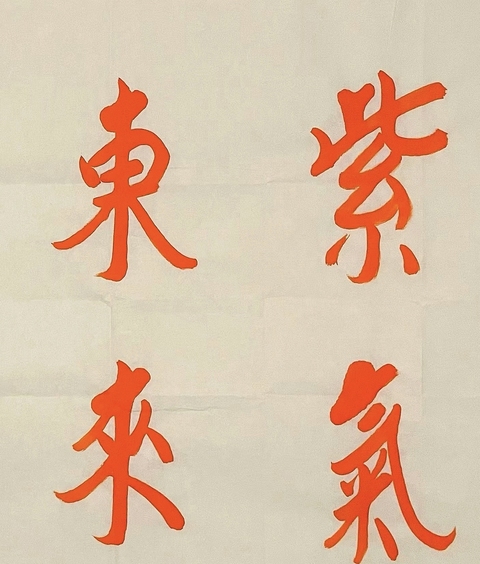 紫氣
東來